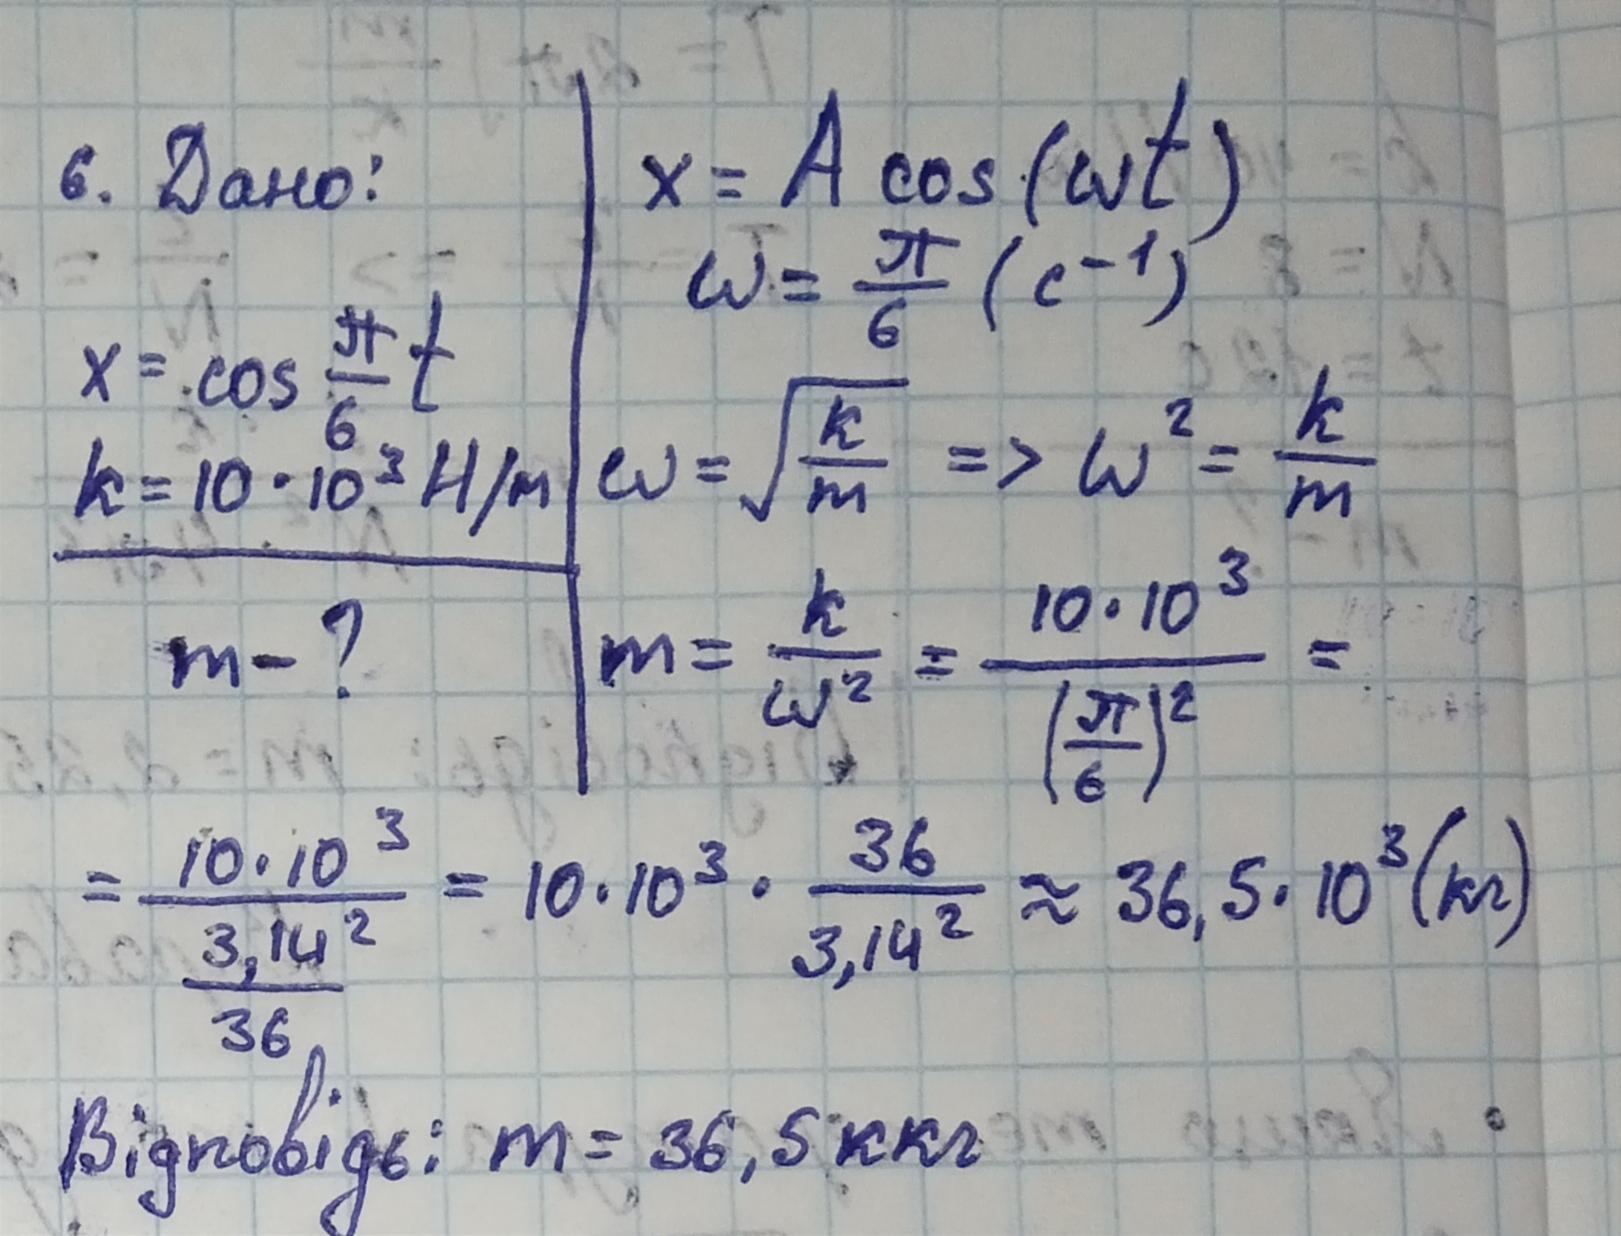 6. Дано:
x = cos π/6 t
k = 10 · 10³ Н/м
m - ?
x = A cos (ωt)
ω = π/6 (c⁻¹)
ω = √(k/m) => ω² = k/m
m = k/ω² = 10 · 10³/(π/6)² =
= 10 · 10³/(3,14²/36) = 10 · 10³ · 36/3,14² ≈ 36,5 · 10³ (кг)
Відповідь: m = 36,5 ккг